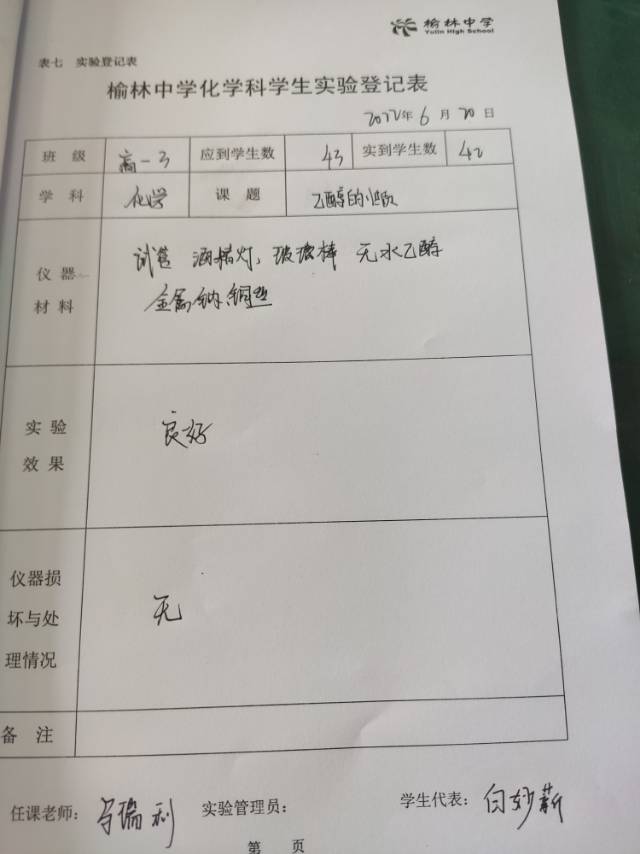 榆林中学
Yulin High School
表七 实验登记表
榆林中学化学科学生实验登记表
2022年6月20日
班级 高一3 应到学生数 43 实到学生数 42
学科 化学 课题 乙醇的性质
仪器 试管 酒精灯、玻璃棒 无水乙醇
材料 金属钠、铜丝
实验 良好
效果
仪器损
坏与处 无
理情况
备注
任课老师: 马瑞利 实验管理员: 学生代表: 白妙薪
第 页